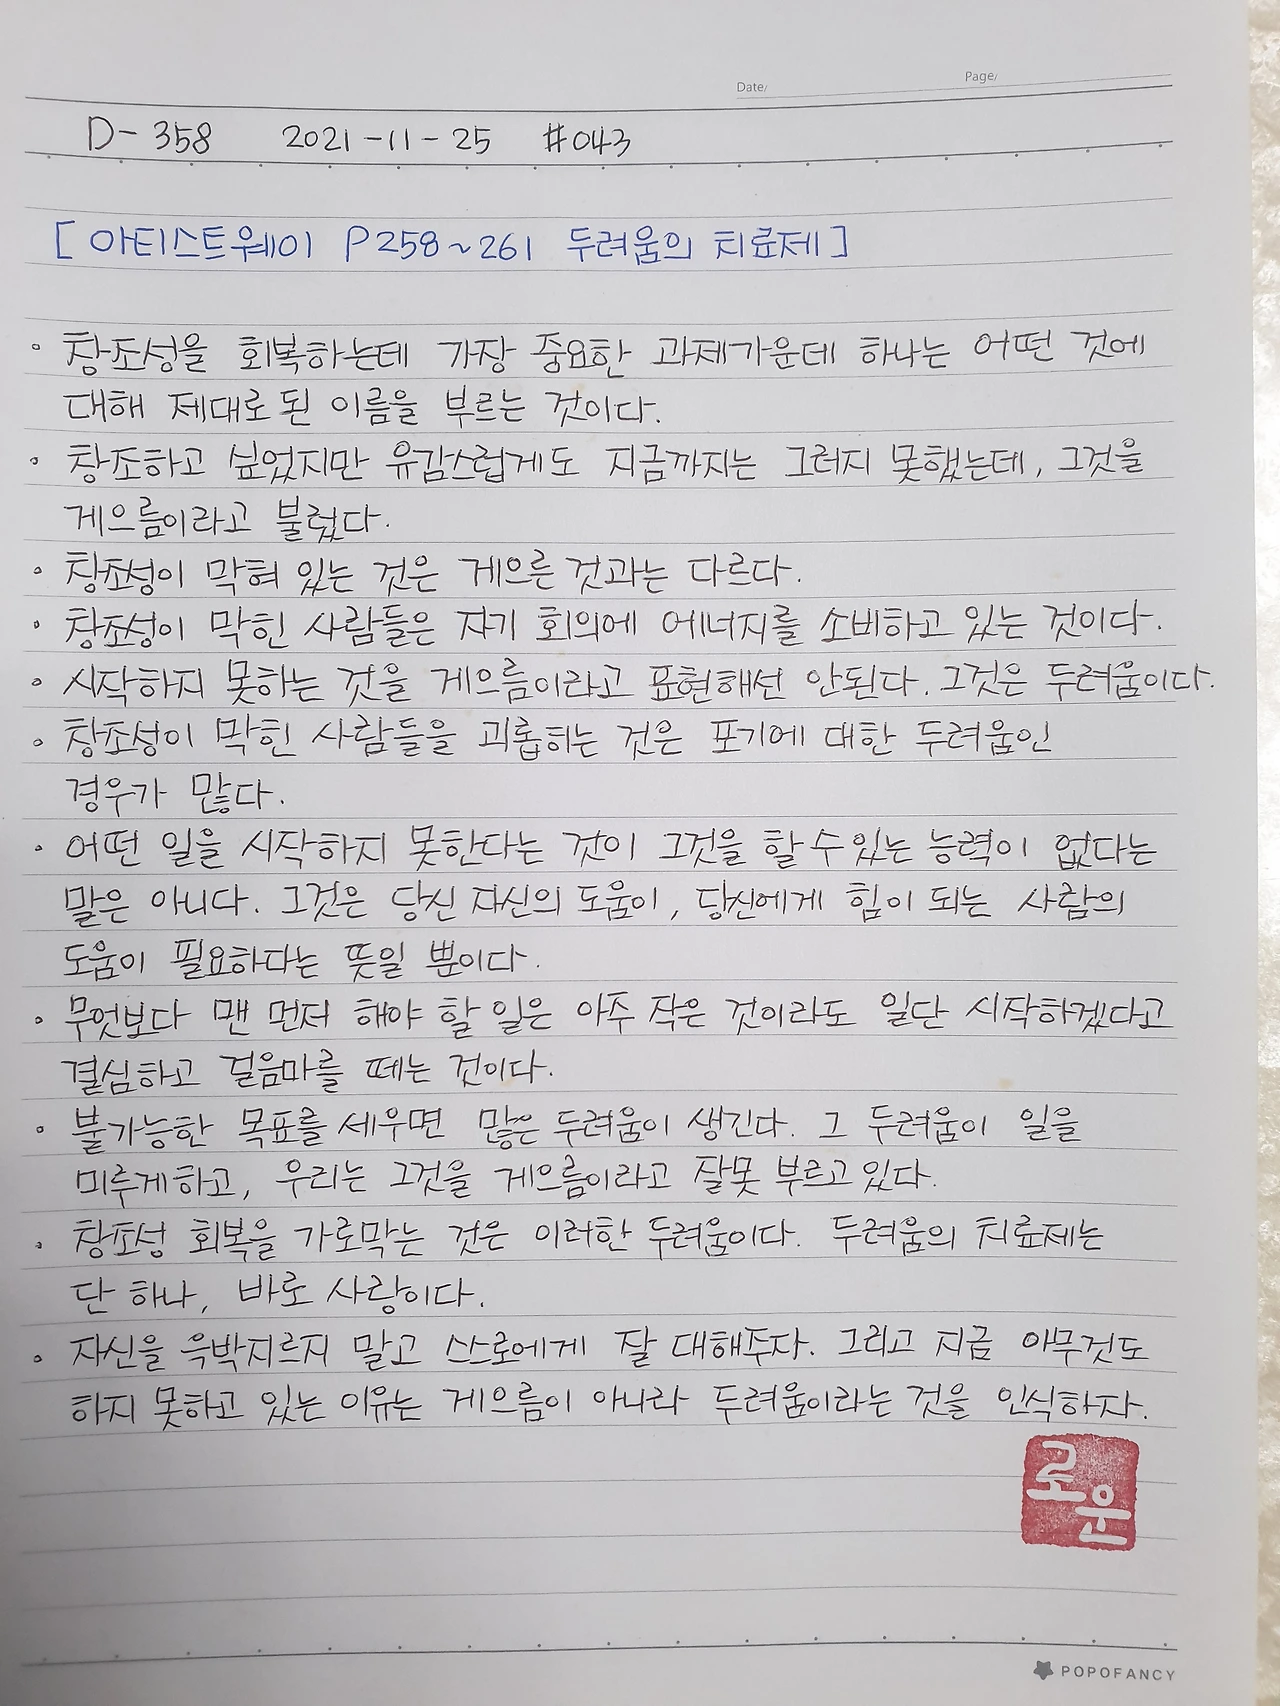 Date/
Page/
D-358 2021-11-25 #043
[아티스트웨이 P258~261 두려움의 치료제]
◦ 창조성을 회복하는데 가장 중요한 과제가운데 하나는 어떤 것에
대해 제대로 된 이름을 부르는 것이다.
◦ 창조하고 싶었지만 유감스럽게도 지금까지는 그러지 못했는데, 그것을
게으름이라고 불렀다.
◦ 창조성이 막혀 있는 것은 게으른 것과는 다르다.
◦ 창조성이 막힌 사람들은 자기 회의에 에너지를 소비하고 있는 것이다.
◦ 시작하지 못하는 것을 게으름이라고 표현해선 안된다. 그것은 두려움이다.
◦ 창조성이 막힌 사람들을 괴롭히는 것은 포기에 대한 두려움인
경우가 많다.
◦ 어떤 일을 시작하지 못한다는 것이 그것을 할 수 있는 능력이 없다는
말은 아니다. 그것은 당신 자신의 도움이, 당신에게 힘이 되는 사람의
도움이 필요하다는 뜻일 뿐이다.
◦ 무엇보다 맨 먼저 해야 할 일은 아주 작은 것이라도 일단 시작하겠다고
결심하고 걸음마를 떼는 것이다.
◦ 불가능한 목표를 세우면 많은 두려움이 생긴다. 그 두려움이 일을
미루게하고, 우리는 그것을 게으름이라고 잘못 부르고 있다.
◦ 창조성 회복을 가로막는 것은 이러한 두려움이다. 두려움의 치료제는
단 하나, 바로 사랑이다.
◦ 자신을 윽박지르지 말고 스스로에게 잘 대해주자. 그리고 지금 아무것도
하지 못하고 있는 이유는 게으름이 아니라 두려움이라는 것을 인식하자.
로운
POPOFANCY